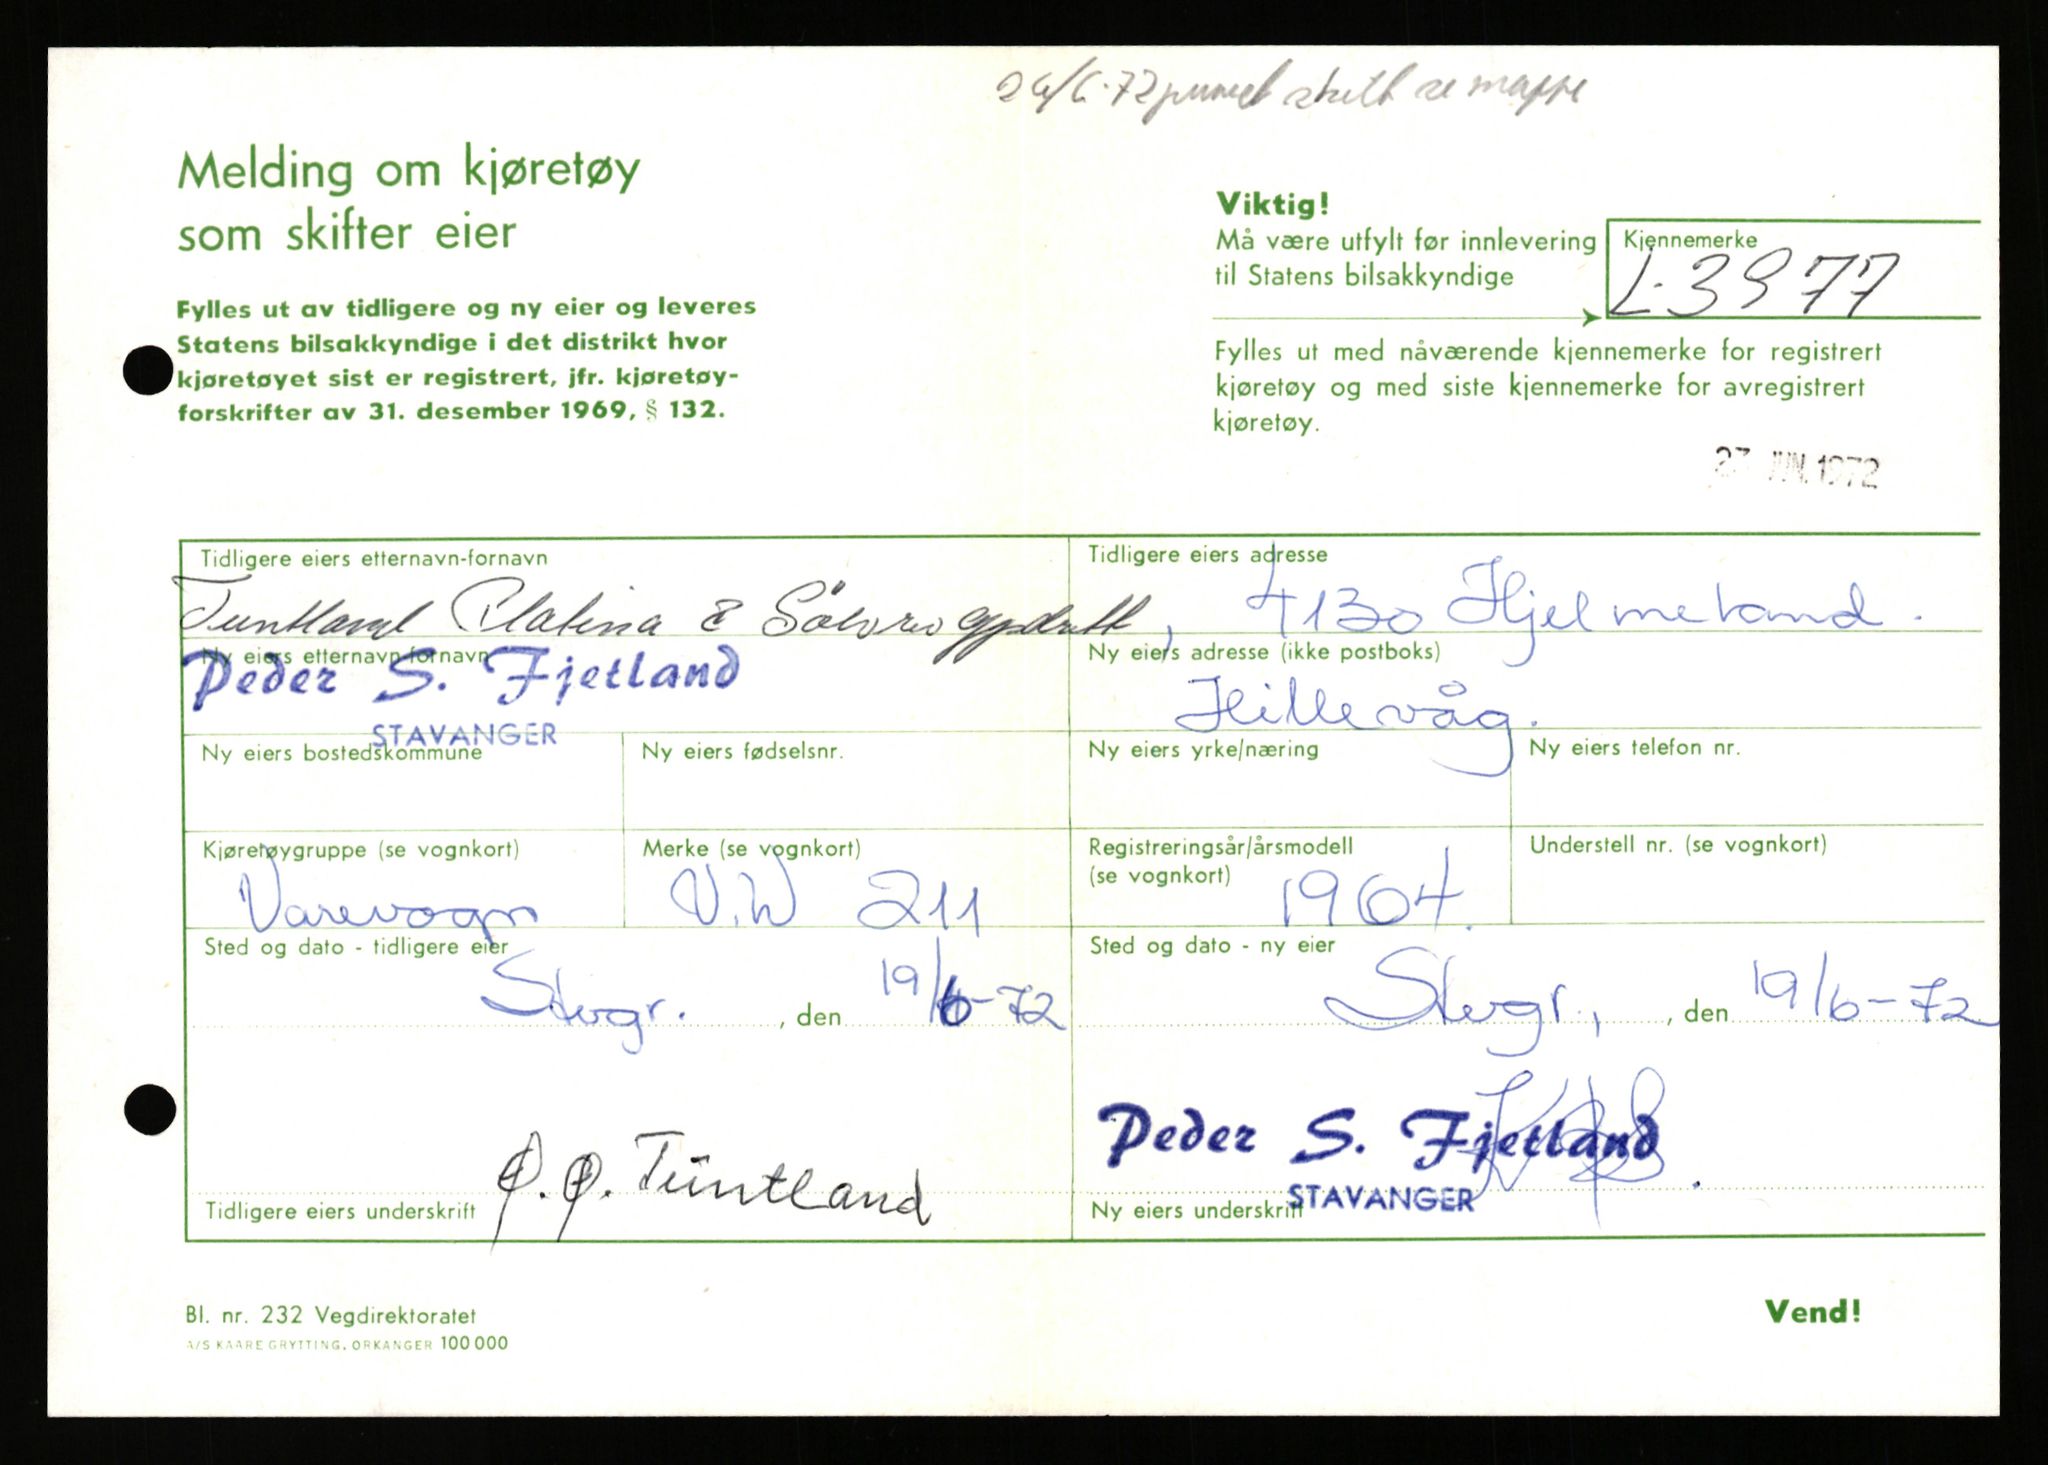 26/6-72 skilt se mappe
Melding om kjøretøy
som skifter eier
Fylles ut av tidligere og ny eier og leveres
Statens bilsakkyndige i det distrikt hvor
kjøretøyet sist er registrert, jfr. kjøretøy-
forskrifter av 31. desember 1969, § 132.
Viktig!
Må være utfylt før innlevering
til Statens bilsakkyndige
Kjennemerke
L-3977
Fylles ut med nåværende kjennemerke for registrert
kjøretøy og med siste kjennemerke for avregistrert
kjøretøy.
27 JUN. 1972
Tidligere eiers etternavn-fornavn
Tuntland Platina & Sølvvareoppdrett,
Tidligere eiers adresse
4130 Hjelmeland.
Ny eiers etternavn-fornavn
Peder S. Fjetland
STAVANGER
Ny eiers adresse (ikke postboks)
Hillevåg.
Ny eiers bostedskommune
Ny eiers fødselsnr.
Ny eiers yrke/næring
Ny eiers telefon nr.
Kjøretøygruppe (se vognkort)
Varevogn
Merke (se vognkort)
V.W 211
Registreringsår/årsmodell
(se vognkort)
1964.
Understell nr. (se vognkort)
Sted og dato - tidligere eier
Stvgr. , den 19/6-72
Sted og dato - ny eier
Stvgr., , den 19/6-72
Ø.Ø. Tuntland
Tidligere eiers underskrift
Peder S. Fjetland
STAVANGER
Ny eiers underskrift
Bl. nr. 232 Vegdirektoratet
A/S KAARE GRYTTING, ORKANGER 100 000
Vend!